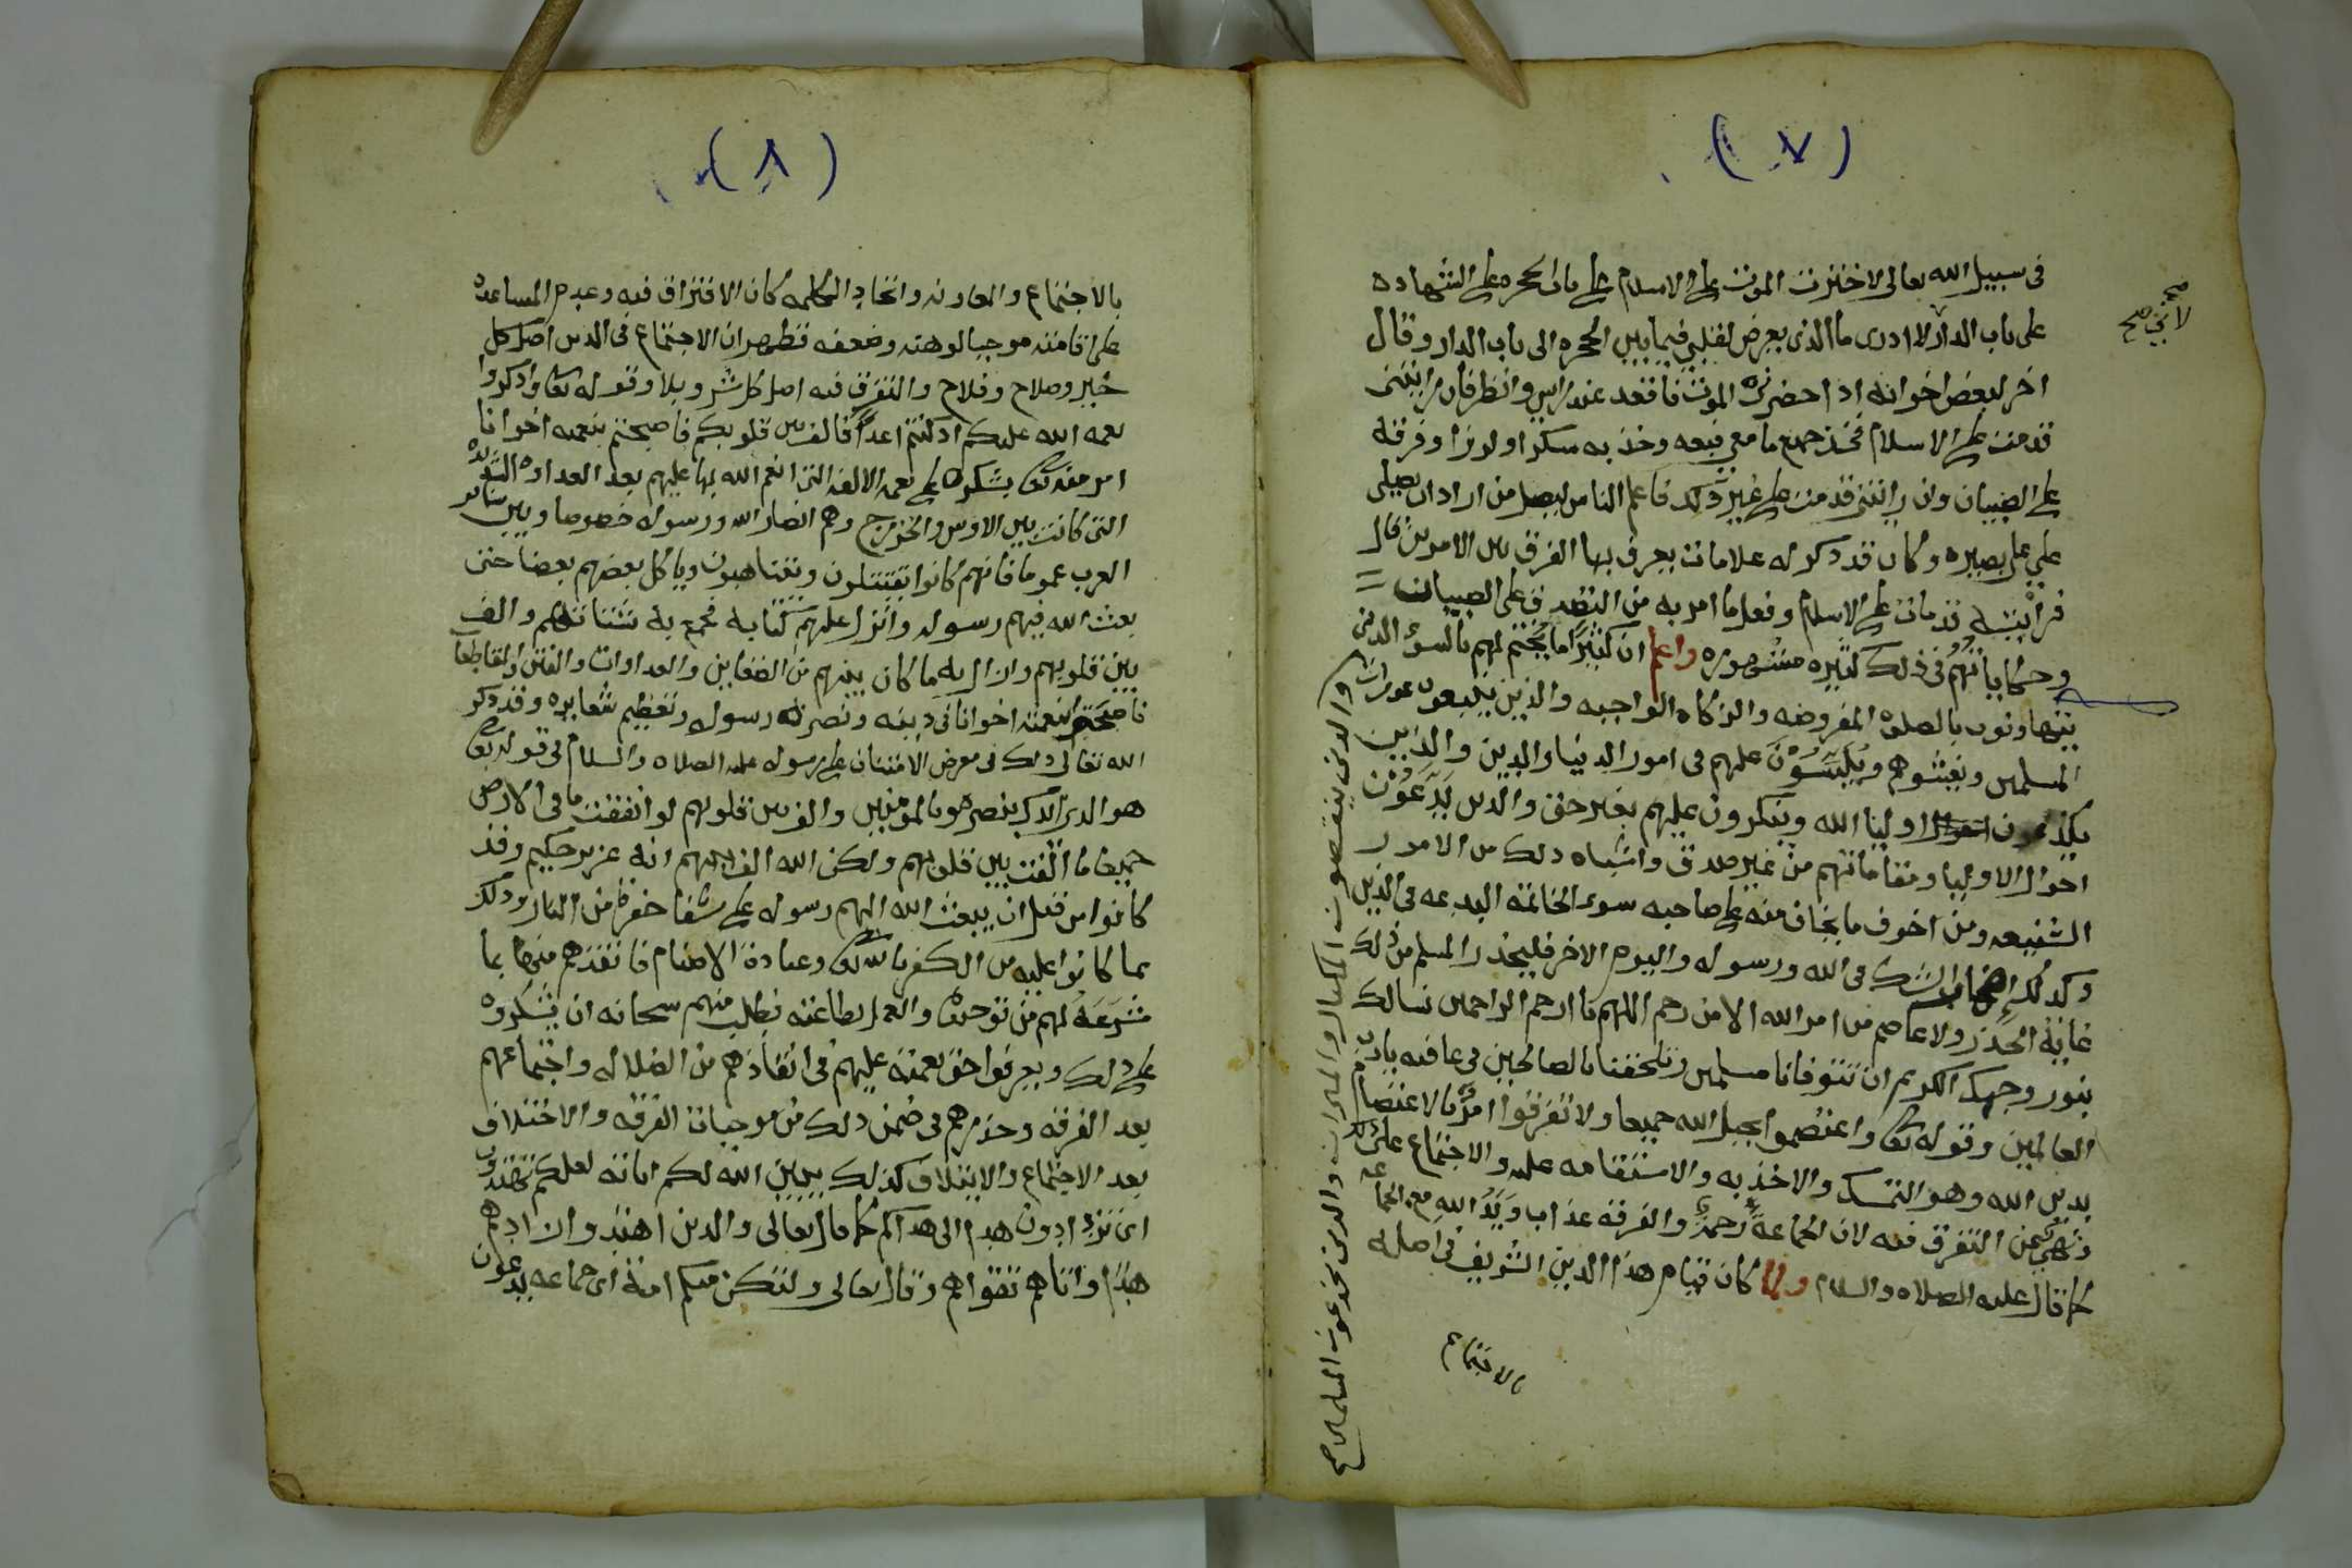 (٧)
في سبيل الله تعالى لاخترت الموت على الاسلام على باب الحجره على الشهاده
على باب الدار لا ادرى ما الذى يعرض لقلبي فيما بين الحجره الى باب الدار وقال
اخر لبعض اخوانه اذا حضرني الموت فاقعد عند راسي وانظر فان رايتنى
قد مت على الاسلام فخذ جميع ما معي فبعه وخذ به سكرا ولوزا وفرقه
على الصبيان وان رايتنى قد مت على غير ذلك فاعلم الناس ليصل من اراد ان يصلى
علي على بصيره وكان قد ذكر له علامات يعرف بها الفرق بين الامرين قال
فرايته قد مات على الاسلام وفعل ما امر به من التصدق على الصبيان
وحكاياتهم في ذلك كثيره مشهوره واعلم ان كثيرا ما يختم لهم بالسوء الذين
يتهاونون بالصلوه المفروضه والزكاه الواجبه والذين يتبعون عورات
المسلمين ويغشوهم ويلبسون عليهم في امور الدنيا والدين والذين
يكذبون اوليا الله وينكرون عليهم بغير حق والذين يدعون
احوال الاوليا ومقاماتهم من غير صدق واشباه ذلك من الامور
الشنيعه ومن اخوف ما يخاف منه على صاحبه سوء الخاتمه البدعه في الدين
وكذلك الشك في الله ورسوله واليوم الاخر فليحذر المسلم من ذلك
غاية الحذر ولا عاصم من امر الله الا من رحم اللهم يا ارحم الراحمين نسالك
بنور وجهك الكريم ان تتوفانا مسلمين وتلحقنا بالصالحين في عافيه يا رب
العالمين وقوله تعالى واعتصموا بحبل الله جميعا ولا تفرقوا امر بالاعتصام
بدين الله وهو التمسك والاخذ به والاستقامه عليه والاجتماع على ذلك
ونهي عن التفرق فيه لان الجماعة رحمة والفرقه عذاب ويد الله مع الجماعه
كما قال عليه الصلاه والسلام ولما كان قيام هذا الدين الشريف في اصله
بالاجتماع
والذين ينقصون المكيال والميزان والذين يخدعون المسلمين صح
(٨)
بالاجتماع والمعاونه واتحاد الكلمه كان الافتراق فيه وعدم المساعده
على اقامته موجبا لوهنه وضعفه فظهر ان الاجتماع في الدين اصل كل
خير وصلاح وفلاح والتفرق فيه اصل كل شر وبلا وقوله تعالى واذكروا
نعمه الله عليكم اذ كنتم اعداً فالف بين قلوبكم فاصبحتم بنعمته اخوانا
امر منه تعالى بشكره على نعمه الالفه التى انعم الله بها عليهم بعد العداوه الشديده
التى كانت بين الاوس والخزرج وهم انصار الله ورسوله خصوصا وبين سائر
العرب عموما فانهم كانوا يقتتلون ويتناهبون وياكل بعضهم بعضا حتى
بعث الله فيهم رسوله وانزل عليهم كتابه فجمع به شتاتهم والف
بين قلوبهم وازال به ما كان بينهم من الضغاين والعداوات والفتن والتقاطعات
فاصبحتم بنعمته اخوانا في دينه ونصرة رسوله وتعظيم شعايره وقد ذكر
الله تعالى ذلك في معرض الامتنان على رسوله عليه الصلاه والسلام في قوله تعالى
هو الذى ايدك بنصره وبالمومنين والف بين قلوبهم لو انفقت ما في الارض
جميعا ما الفت بين قلوبهم ولكن الله الف بينهم انه عزيز حكيم وقد
كانوا من قبل ان يبعث الله اليهم رسوله على شفا حفرة من النار وذلك
بما كانوا عليه من الكفر بالله تعالى وعبادة الاصنام فانقذهم منها بما
شرعه لهم من توحيده والعمل بطاعته فطلب منهم سبحانه ان يشكروه
على ذلك ويعرفوا حق نعمته عليهم في انقاذهم من الضلاله واجتماعهم
بعد الفرقه وحذرهم في ضمن ذلك من موجبات الفرقه والاختلاف
بعد الاجتماع والايتلاف كذلك يبين الله لكم اياته لعلكم تهتدون
اى تزدادون هدى الى هداكم كما قال تعالى والذين اهتدوا زادهم
هدى واتاهم تقواهم وقال تعالى ولتكن منكم امة اى جماعه يدعون